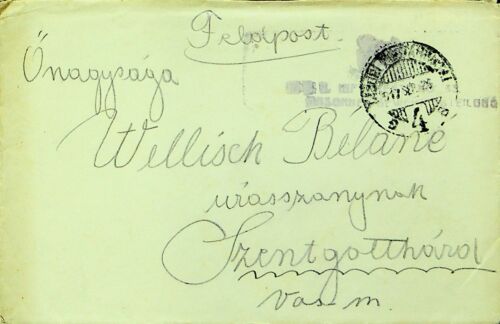 Feldpost.
Őnagysága
Wellisch Beláné
urasszanynak
Szentgotthárd
Vas m.